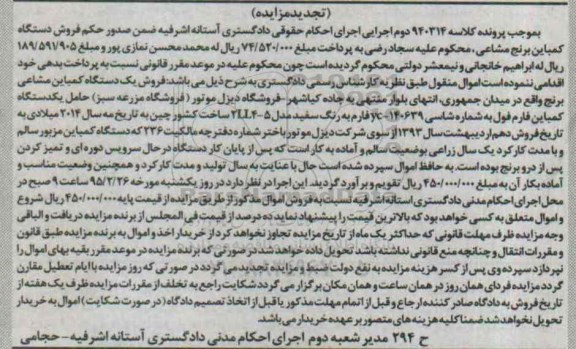 (تجدیدمزایده)
بموجب پرونده کلاسه ۹۴۰۳۱۴ دوم اجرایی اجرای احکام حقوقی دادگستری آستانه اشرفیه ضمن صدور حکم فروش دستگاه
کمباین برنج مشاعی، محکوم علیه سجاد رضی به پرداخت مبلغ ۷۴/۵۲۰/۰۰۰ ریال له محمد محسن نمازی پور و مبلغ ۱۸۹/۵۹۱/۹۰۵
ریال له ابراهیم خانجانی و نیمعشر دولتی محکوم گردیده است چون محکوم علیه در موعد مقرر قانونی نسبت به پرداخت بدهی خود
اقدامی ننموده است اموال منقول طبق نظریه کارشناس رسمی دادگستری به شرح ذیل می باشد: فروش یک دستگاه کمباین مشاعی
برنج واقع در میدان جمهوری، انتهای بلوار منتهی به جاده کیاشهر - فروشگاه دیزل موتور (فروشگاه مزرعه سبز) حامل یکدستگاه
کمباین فارم قول به شماره شاسی yc۰۱۴۰۶۳۹ فارم به رنگ سفید مدل ۵-2LL4 ساخت کشور چین به تاریخ مه سال ۲۰۱۴ میلادی به
تاریخ فروش دهم اردیبهشت سال ۱۳۹۳ از سوی شرکت دیزل موتور باختر شماره دفترچه مالکیت ۲۳۶ که دستگاه کمباین مزبور سالم
و با مدت کارکرد یک سال زراعی بوضعیت سالم و آماده به کار است که پس از پایان کار دستگاه در حال سرویس دوره ای و تمیز کردن
پس از درو برنج بوده است. به حافظ اموال سپرده شده است حال با عنایت به سال تولید و مدت کارکرد و همچنین وضعیت مناسب و
آماده بکار آن به مبلغ ۴۵۰/۰۰۰/۰۰۰ ریال تقویم و برآورد گردید. این اجرا در نظر دارد در روز یکشنبه مورخه ۹۵/۲/۲۶ ساعت ۹ صبح در
محل اجرای احکام مدنی دادگستری آستانه اشرفیه نسبت به فروش اموال مذکور از طریق مزایده از قیمت پایه ۴۵۰/۰۰۰/۰۰۰ ریال شروع
و اموال متعلق به کسی خواهد بود که بالاترین قیمت را پیشنهاد نماید ده درصد از قیمت فی المجلس از برنده مزایده دریافت و الباقی
وجه مزایده ظرف مهلت قانونی که حداکثر یک ماه از تاریخ مزایده تجاوز نخواهد کرد از خریدار اخذ و اموال به برنده مزایده طبق قانون
و مقررات انتقال و چنانچه منع قانونی نداشته باشد تحویل داده خواهد شد در صورتی که برنده مزایده در موعد مقرر بقیه بهای اموال را
نپردازد سپرده وی پس از کسر هزینه مزایده به نفع دولت ضبط و مزایده تجدید می گردد در صورتی که روز مزایده با ایام تعطیل مقارن
گردد مزایده فردای همان روز در همان ساعت و همان مکان برگزار می گردد شکایت راجع به تخلف از مقررات مزایده ظرف یک هفته از
تاریخ فروش به دادگاه صادر کننده ارجاع و قبل از اتمام مهلت مذکور یا قبل از اتخاذ تصمیم دادگاه (در صورت شکایت) اموال به خریدار
تحویل نخواهد شد ضمنا کلیه هزینه های متصور بر عهده خریدار می باشد.
ح ۲۹۴ مدیر شعبه دوم اجرای احکام مدنی دادگستری آستانه اشرفیه - حجامی